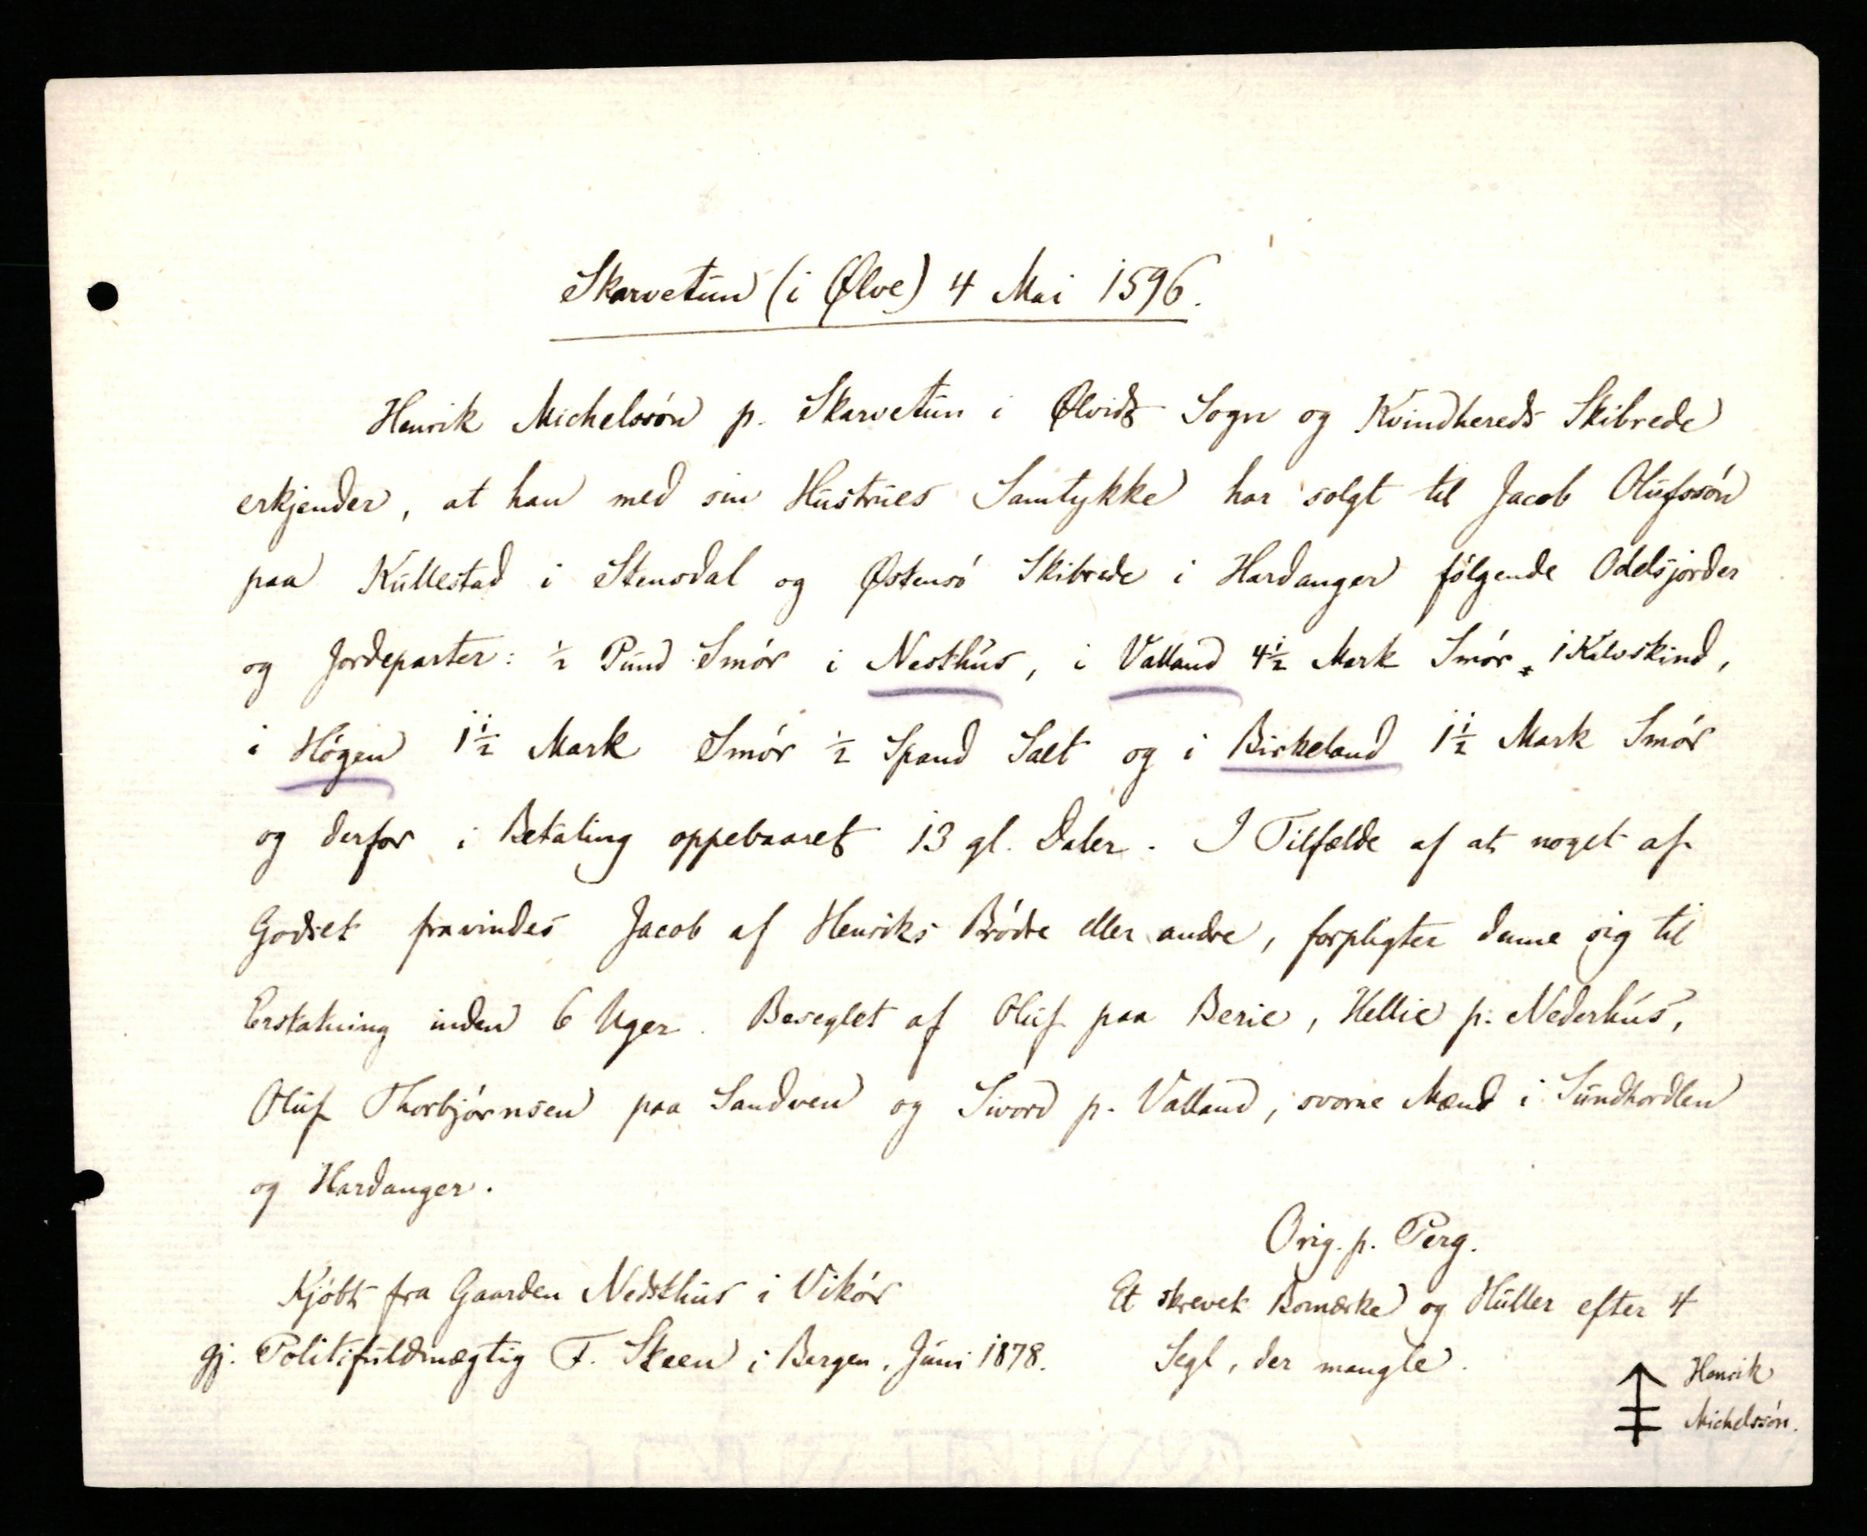 Skarvetun (i Ølve) 4 Mai 1596.
Henrik Michelssön p. Skarvetun i Ølvids Sogn og Kvindhereds Skibrede
erkjender, at han med sin Hustrues Samtykke har solgt til Jacob Olufssön
paa Kullestad i Stensdal og Østensö Skibrede i Hardanger fölgende Odelsjorder
og Jordeparter: ½ Pund Smör i Nesthus, i Valland 4½ Mark Smör, 1 Kalvskind,
i Högen 1½ Mark Smör ½ Spand Salt og i Birkeland 1½ Mark Smör
og derfor i Betaling oppebaaret 13 gl. Daler. I Tilfælde af at noget af
Godset fravindes Jacob af Henriks Brödre eller andre, forpligter denne sig til
Erstatning inden 6 Uger. Beseglet af Oluf paa Berie, Hellie p. Nederhus,
Oluf Thorbjörnsen paa Sandven og Sivord p. Valland, svorne Mænd i Sundhordlen
og Hardanger.
Orig. p. Perg.
Kjöbt fra Gaarden Nedsthus i Vikör
gj. Politifuldmægtig F. Skeen i Bergen, Juni 1878.
Et skrevet Bomærke og Huller efter 4
Segl, der mangle.
Henrik
Michelssön.